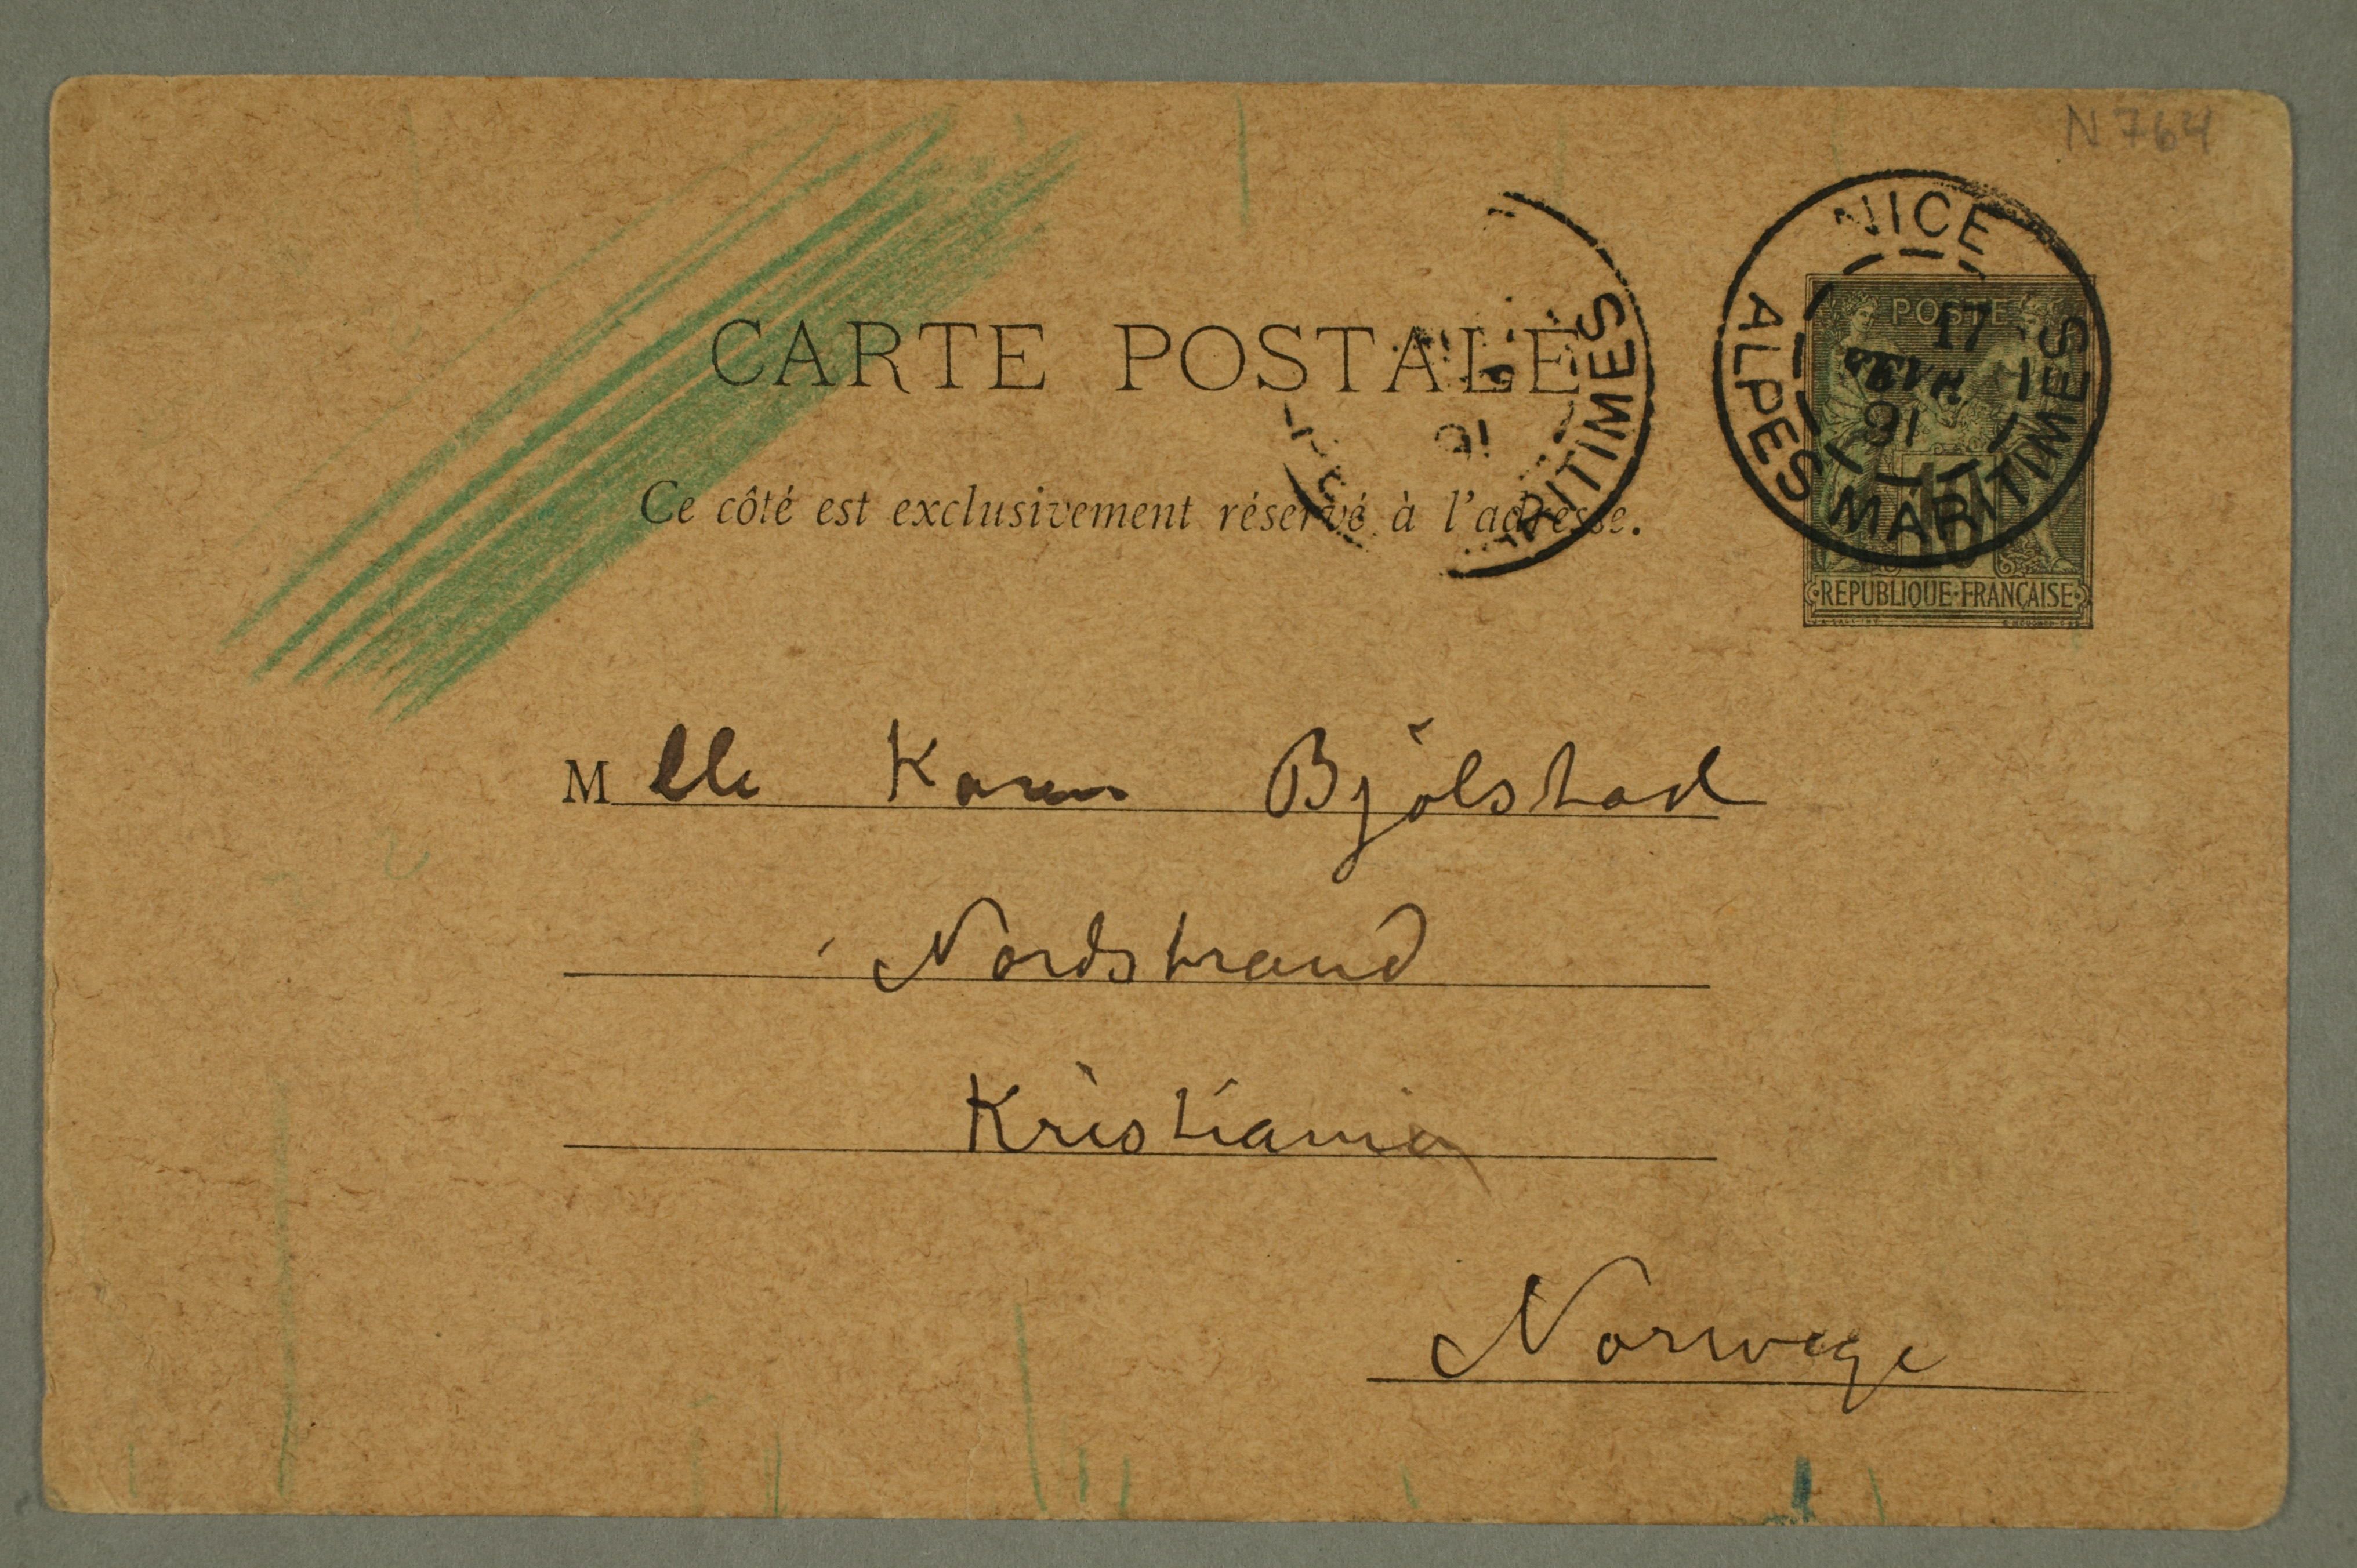 N 764
NICE
17
AVR
91
ALPES MARITIMES
POSTE
10
REPUBLIQUE·FRANÇAISE
CARTE POSTALE
91
MARITIMES
Ce côté est exclusivement réservé à l'adresse.
Mlle Karen Bjölstad
Nordstrand
Kristiania
Norwege